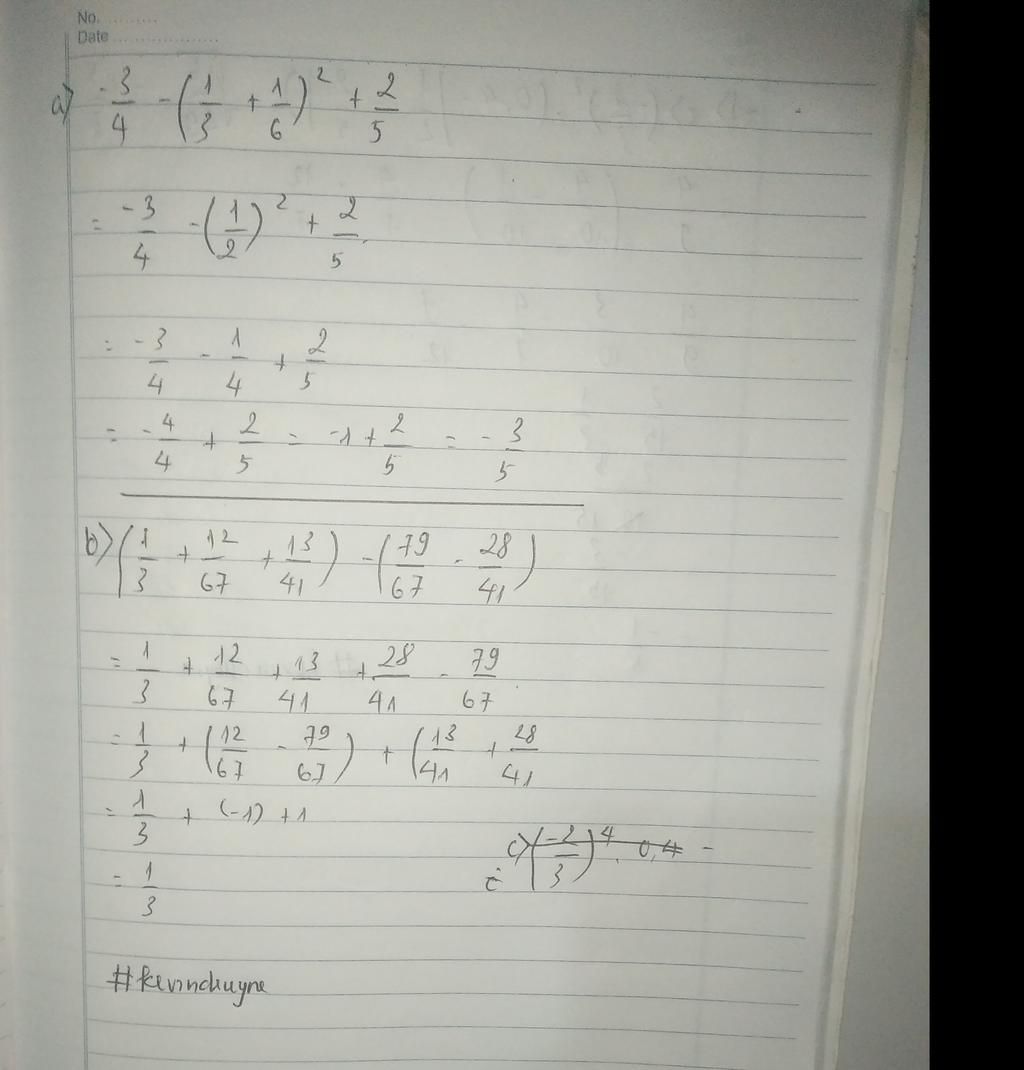 No. ..........
Date ....................
a) -3/4 - (1/3 + 1/6)² + 2/5
= -3/4 - (1/2)² + 2/5.
= -3/4 - 1/4 + 2/5
= -4/4 + 2/5 = -1 + 2/5 = -3/5
b) (1/3 + 12/67 + 13/41) - (79/67 - 28/41)
= 1/3 + 12/67 + 13/41 + 28/41 - 79/67.
= 1/3 + (12/67 - 79/67) + (13/41 + 28/41
= 1/3 + (-1) + 1
= 1/3
c) (-2/3)⁴ . 0,4 -
#kevinchuyne